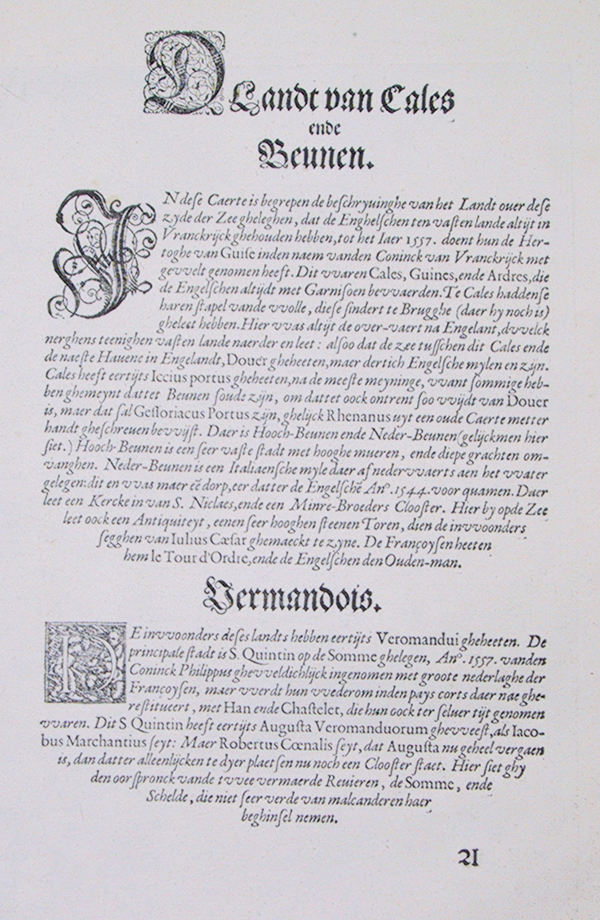 D Landt van Cales
ende
Beunen.
IN dese Caerte is begrepen de beschryuinghe van het Landt ouer dese
zyde der Zee gheleghen, dat de Enghelschen ten vasten lande altijt in
Vranckrijck ghehouden hebben, tot het Iaer 1557. doent hun de Her-
toghe van Guise inden naem vanden Coninck van Vranckrijck met
gevvelt genomen heeft. Dit vvaren Cales, Guines, ende Ardres, die
de Engelschen altijdt met Garnisoen bevvaerden. Te Cales haddense
haren stapel vande vvolle, diese sindert te Brugghe (daer hy noch is)
gheleet hebben. Hier vvas altijt de over-vaert na Engelant, dvvelck
nerghens teenighen vasten lande naerder en leet: alsoo dat de zee tusschen dit Cales ende
de naeste Hauene in Engelandt, Douer gheheeten, maer dertich Engelsche mylen en zijn.
Cales heeft eertijts Iccius portus gheheeten, na de meeste meyninge, vvant sommige heb-
ben ghemeynt dattet Beunen soude zijn, om dattet oock ontrent soo vvijdt van Douer
is, maer dat sal Gestoriacus Portus zijn, ghelijck Rhenanus uyt een oude Caerte metter
handt gheschreuen bevvijst. Daer is Hooch-Beunen ende Neder-Beunen (gelijckmen hier
siet.) Hooch-Beunen is een seer vaste stadt met hooghe mueren, ende diepe grachten om-
vanghen. Neder-Beunen is een Italiaensche myle daer af nedervvaerts aen het vvater
gelegen: dit en vvas maer eē dorp, eer datter de Engelschē Anº. 1544. voor quamen. Daer
leet een Kercke in van S. Niclaes, ende een Minre-Broeders Clooster. Hier by opde Zee
leet oock een Antiquiteyt, eenen seer hooghen steenen Toren, dien de invvoonders
segghen van Iulius Cæsar ghemaeckt te zyne. De Françoysen heeten
hem le Tour d'Ordre, ende de Engelschen den Ouden-man.
Vermandois.
DE invvoonders deses landts hebben eertijts Veromandui gheheeten. De
principale stadt is S. Quintin op de Somme ghelegen, Anº. 1557. vanden
Coninck Philippus ghevveldichlijck ingenomen met groote nederlaghe der
Françoysen, maer vverdt hun vvederom inden pays corts daer nae ghe-
restitueert, met Han ende Chastelet, die hun oock ter seluer tijt genomen
vvaren. Dit S Quintin heeft eertijts Augusta Veromanduorum ghevveest, als Iaco-
bus Marchantius seyt: Maer Robertus Cœnalis seyt, dat Augusta nu geheel vergaen
is, dan datter alleenlijcken te dyer plaetsen nu noch een Clooster staet. Hier siet ghy
den oorspronck vande tvvee vermaerde Reuieren, de Somme, ende
Schelde, die niet seer verde van malcanderen haer
beghinsel nemen.
21